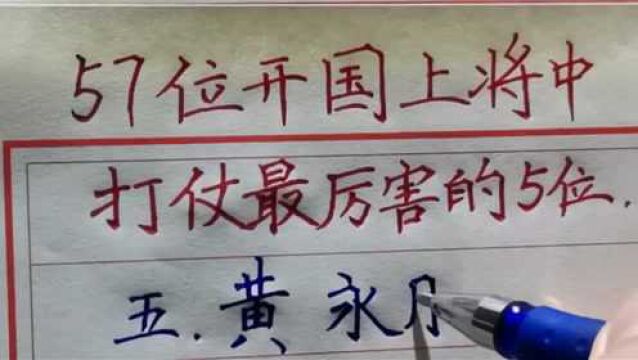 57位开国上将中
打仗最厉害的5位.
五.黄永